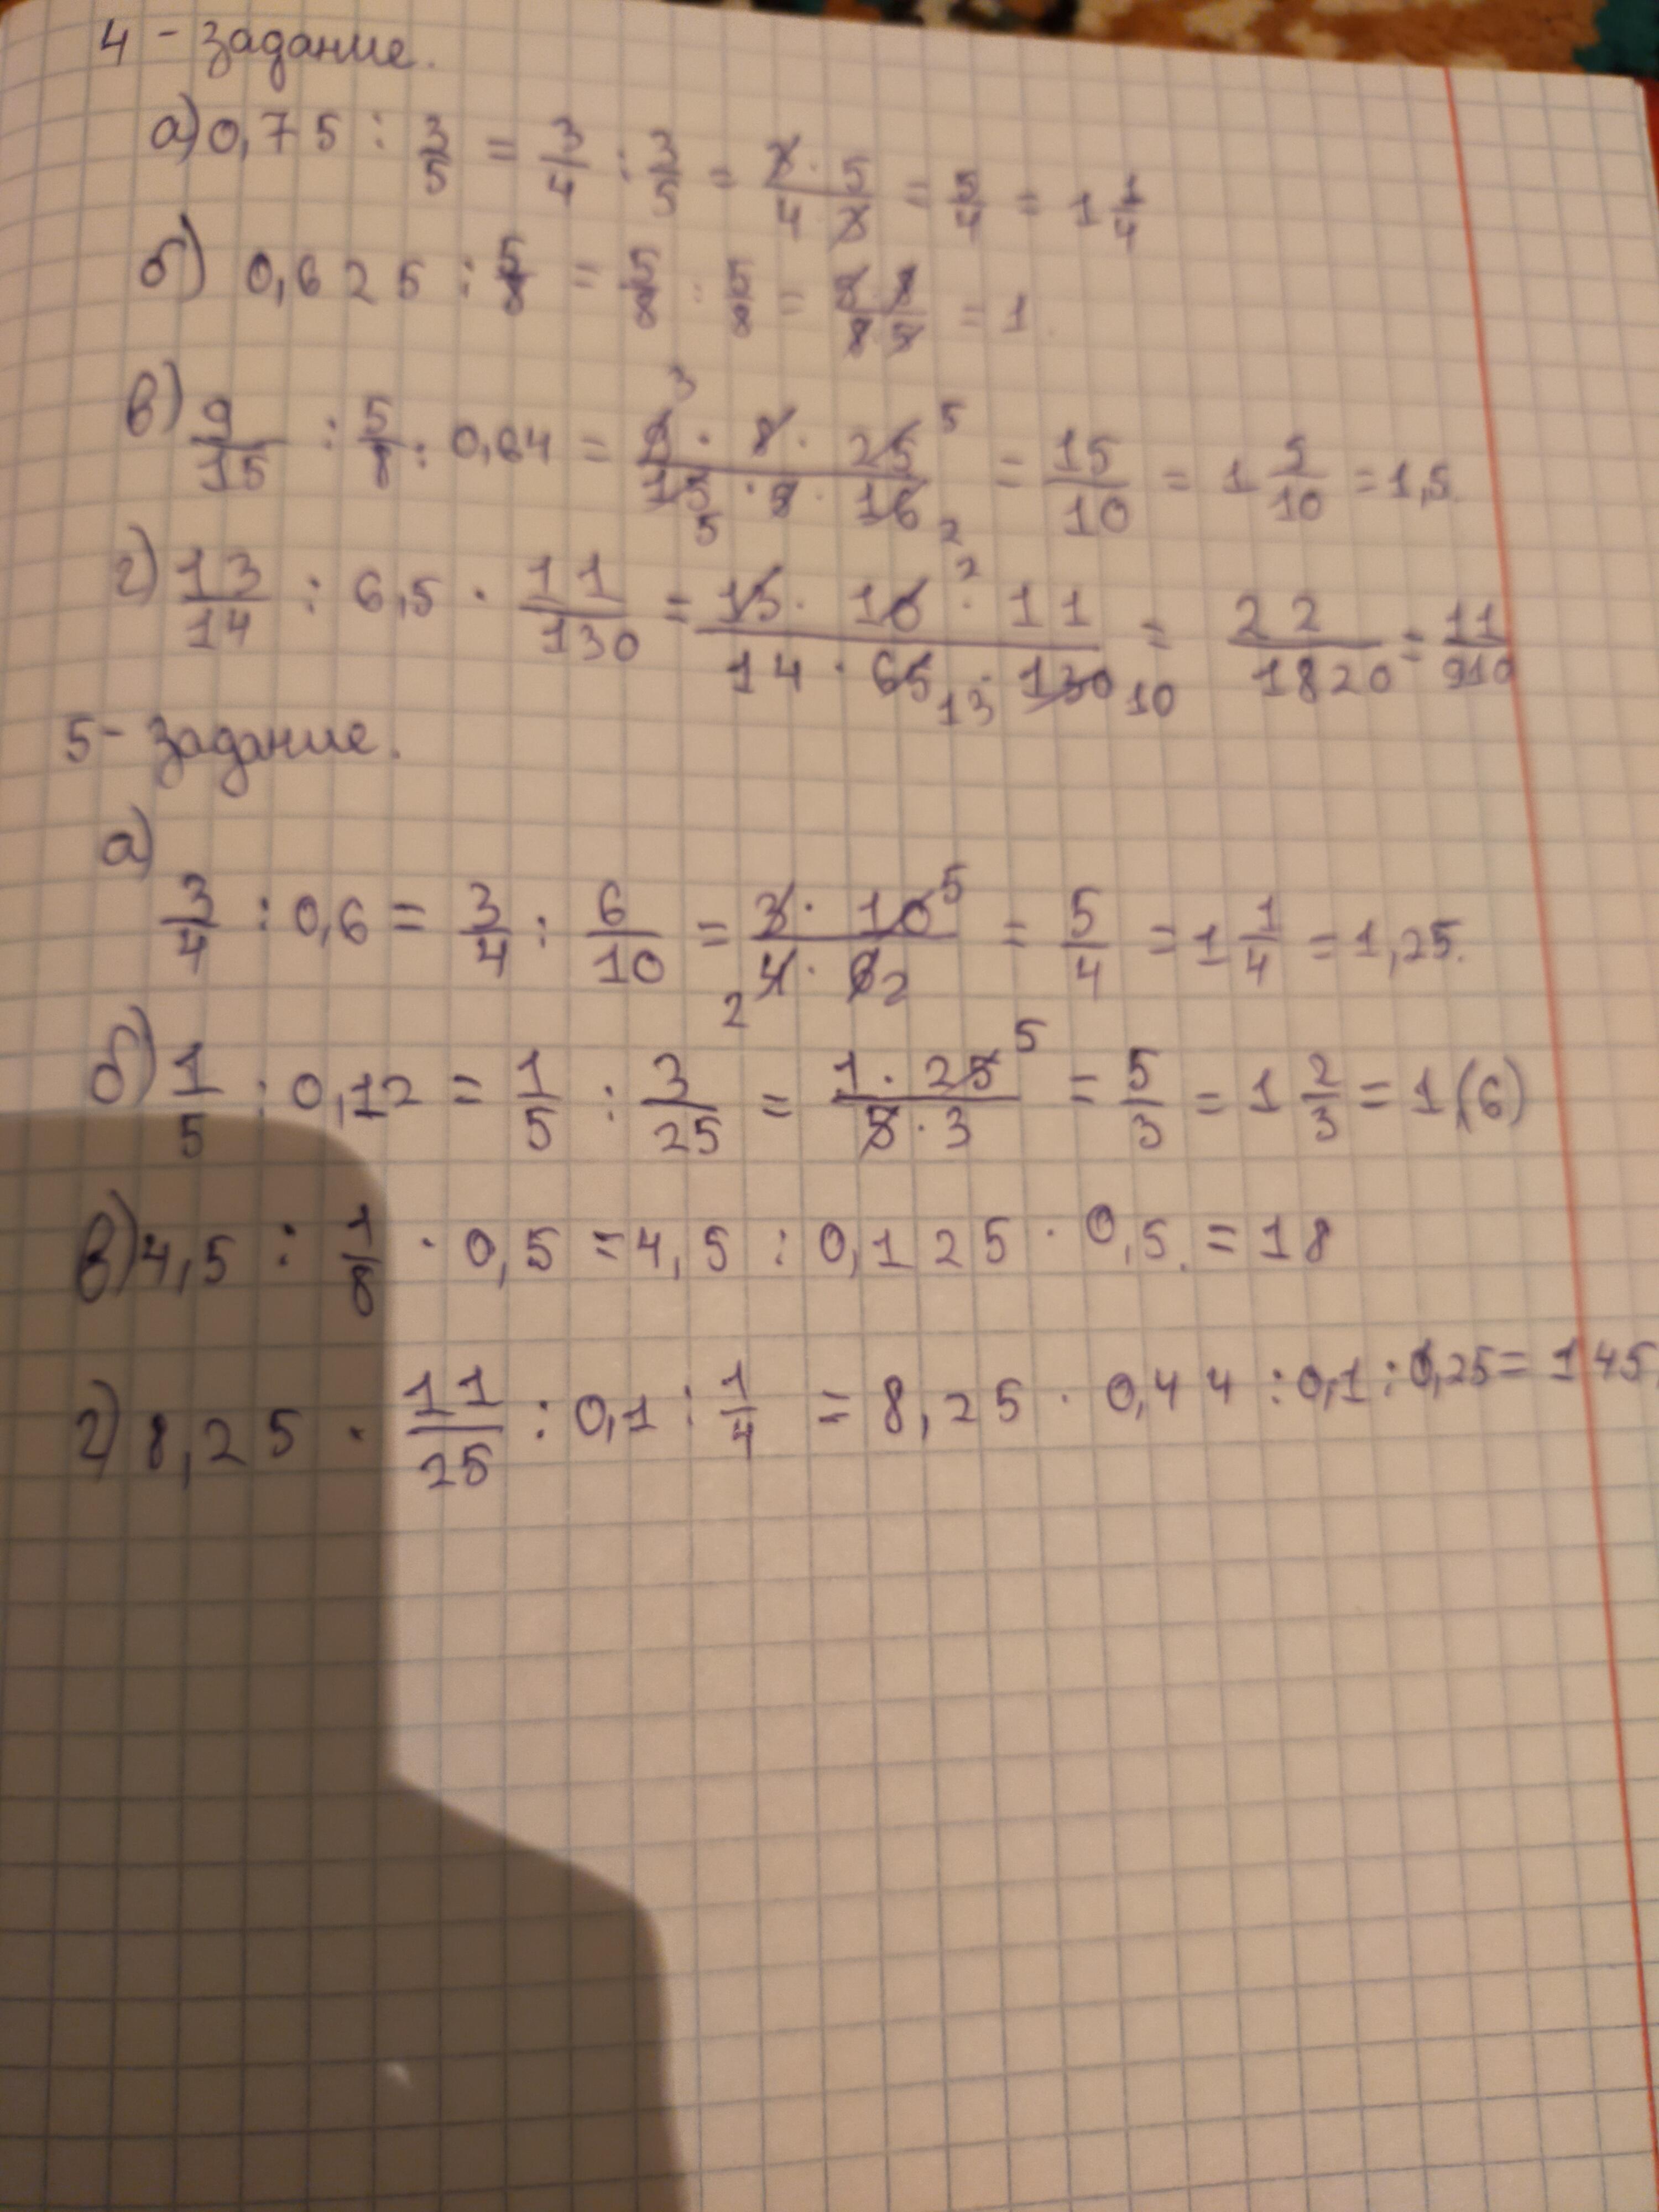 4 - задание.
а) 0,75 : 3/5 = 3/4 : 3/5 = 3 · 5 / 4 · 3 = 5/4 = 1 1/4
б) 0,625 : 5/8 = 5/8 : 5/8 = 5 · 8 / 8 · 5 = 1
в) 9/15 : 5/8 : 0,64 = 9 3 · 8 · 25 5 / 15 5 · 5 · 16 2 = 15/10 = 1 5/10 = 1,5.
г) 13/14 : 6,5 · 11/130 = 13 · 10 2 · 11 / 14 · 65 13 · 130 10 = 22/1820 = 11/910
5 - задание.
а)
3/4 : 0,6 = 3/4 : 6/10 = 3 · 10 5 / 2 4 · 6 2 = 5/4 = 1 1/4 = 1,25.
б) 1/5 : 0,12 = 1/5 : 3/25 = 1 · 25 5 / 5 · 3 = 5/3 = 1 2/3 = 1,(6)
в) 4,5 : 1/8 · 0,5 = 4,5 : 0,125 · 0,5. = 18
г) 8,25 · 11/25 : 0,1 : 1/4 = 8,25 · 0,44 : 0,1 : 0,25 = 145.